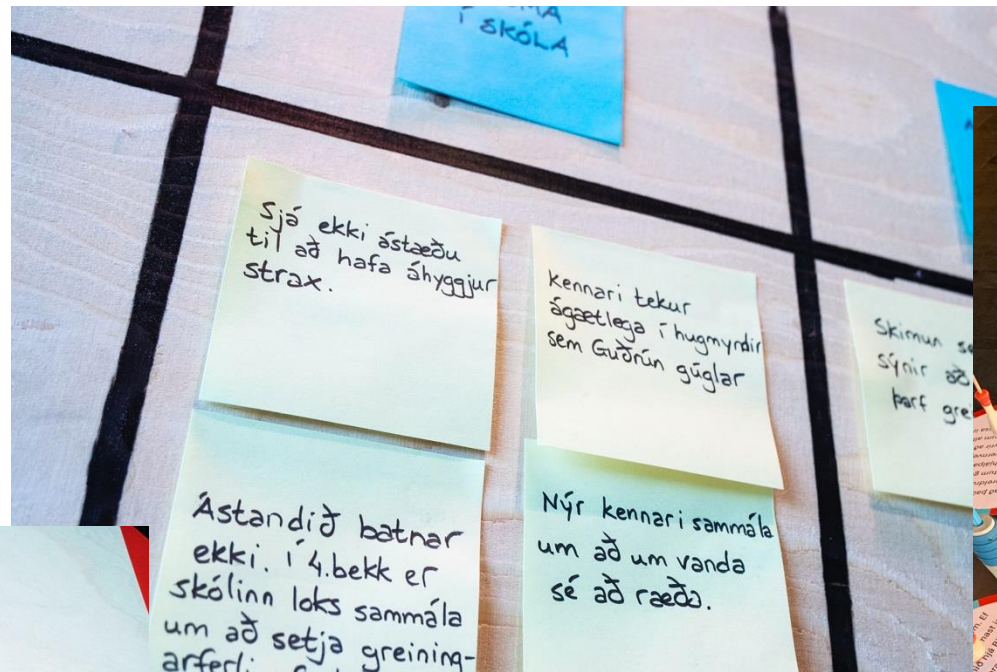 Í SKÓLA
Sjá ekki ástæðu
til að hafa áhyggjur
strax.
Kennari tekur
ágætlega í hugmyndir
sem Guðrún gúglar
Skimun
sýnir að
þarf
Ástandið batnar
ekki. Í 4.bekk er
skólinn loks sammála
um að setja greining-
Nýr kennari sammála
um að um vanda
sé að ræða.